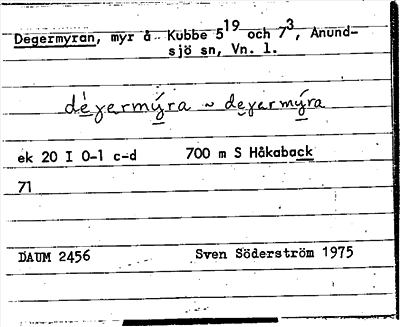 Degermyran, myr å Kubbe 5¹⁹ och 7³, Anund-
sjö sn, Vn. l.
dégermýra ~ degermýra
ek 20 I 0-1 c-d 700 m S Håkaback
71
DAUM 2456 Sven Söderström 1975